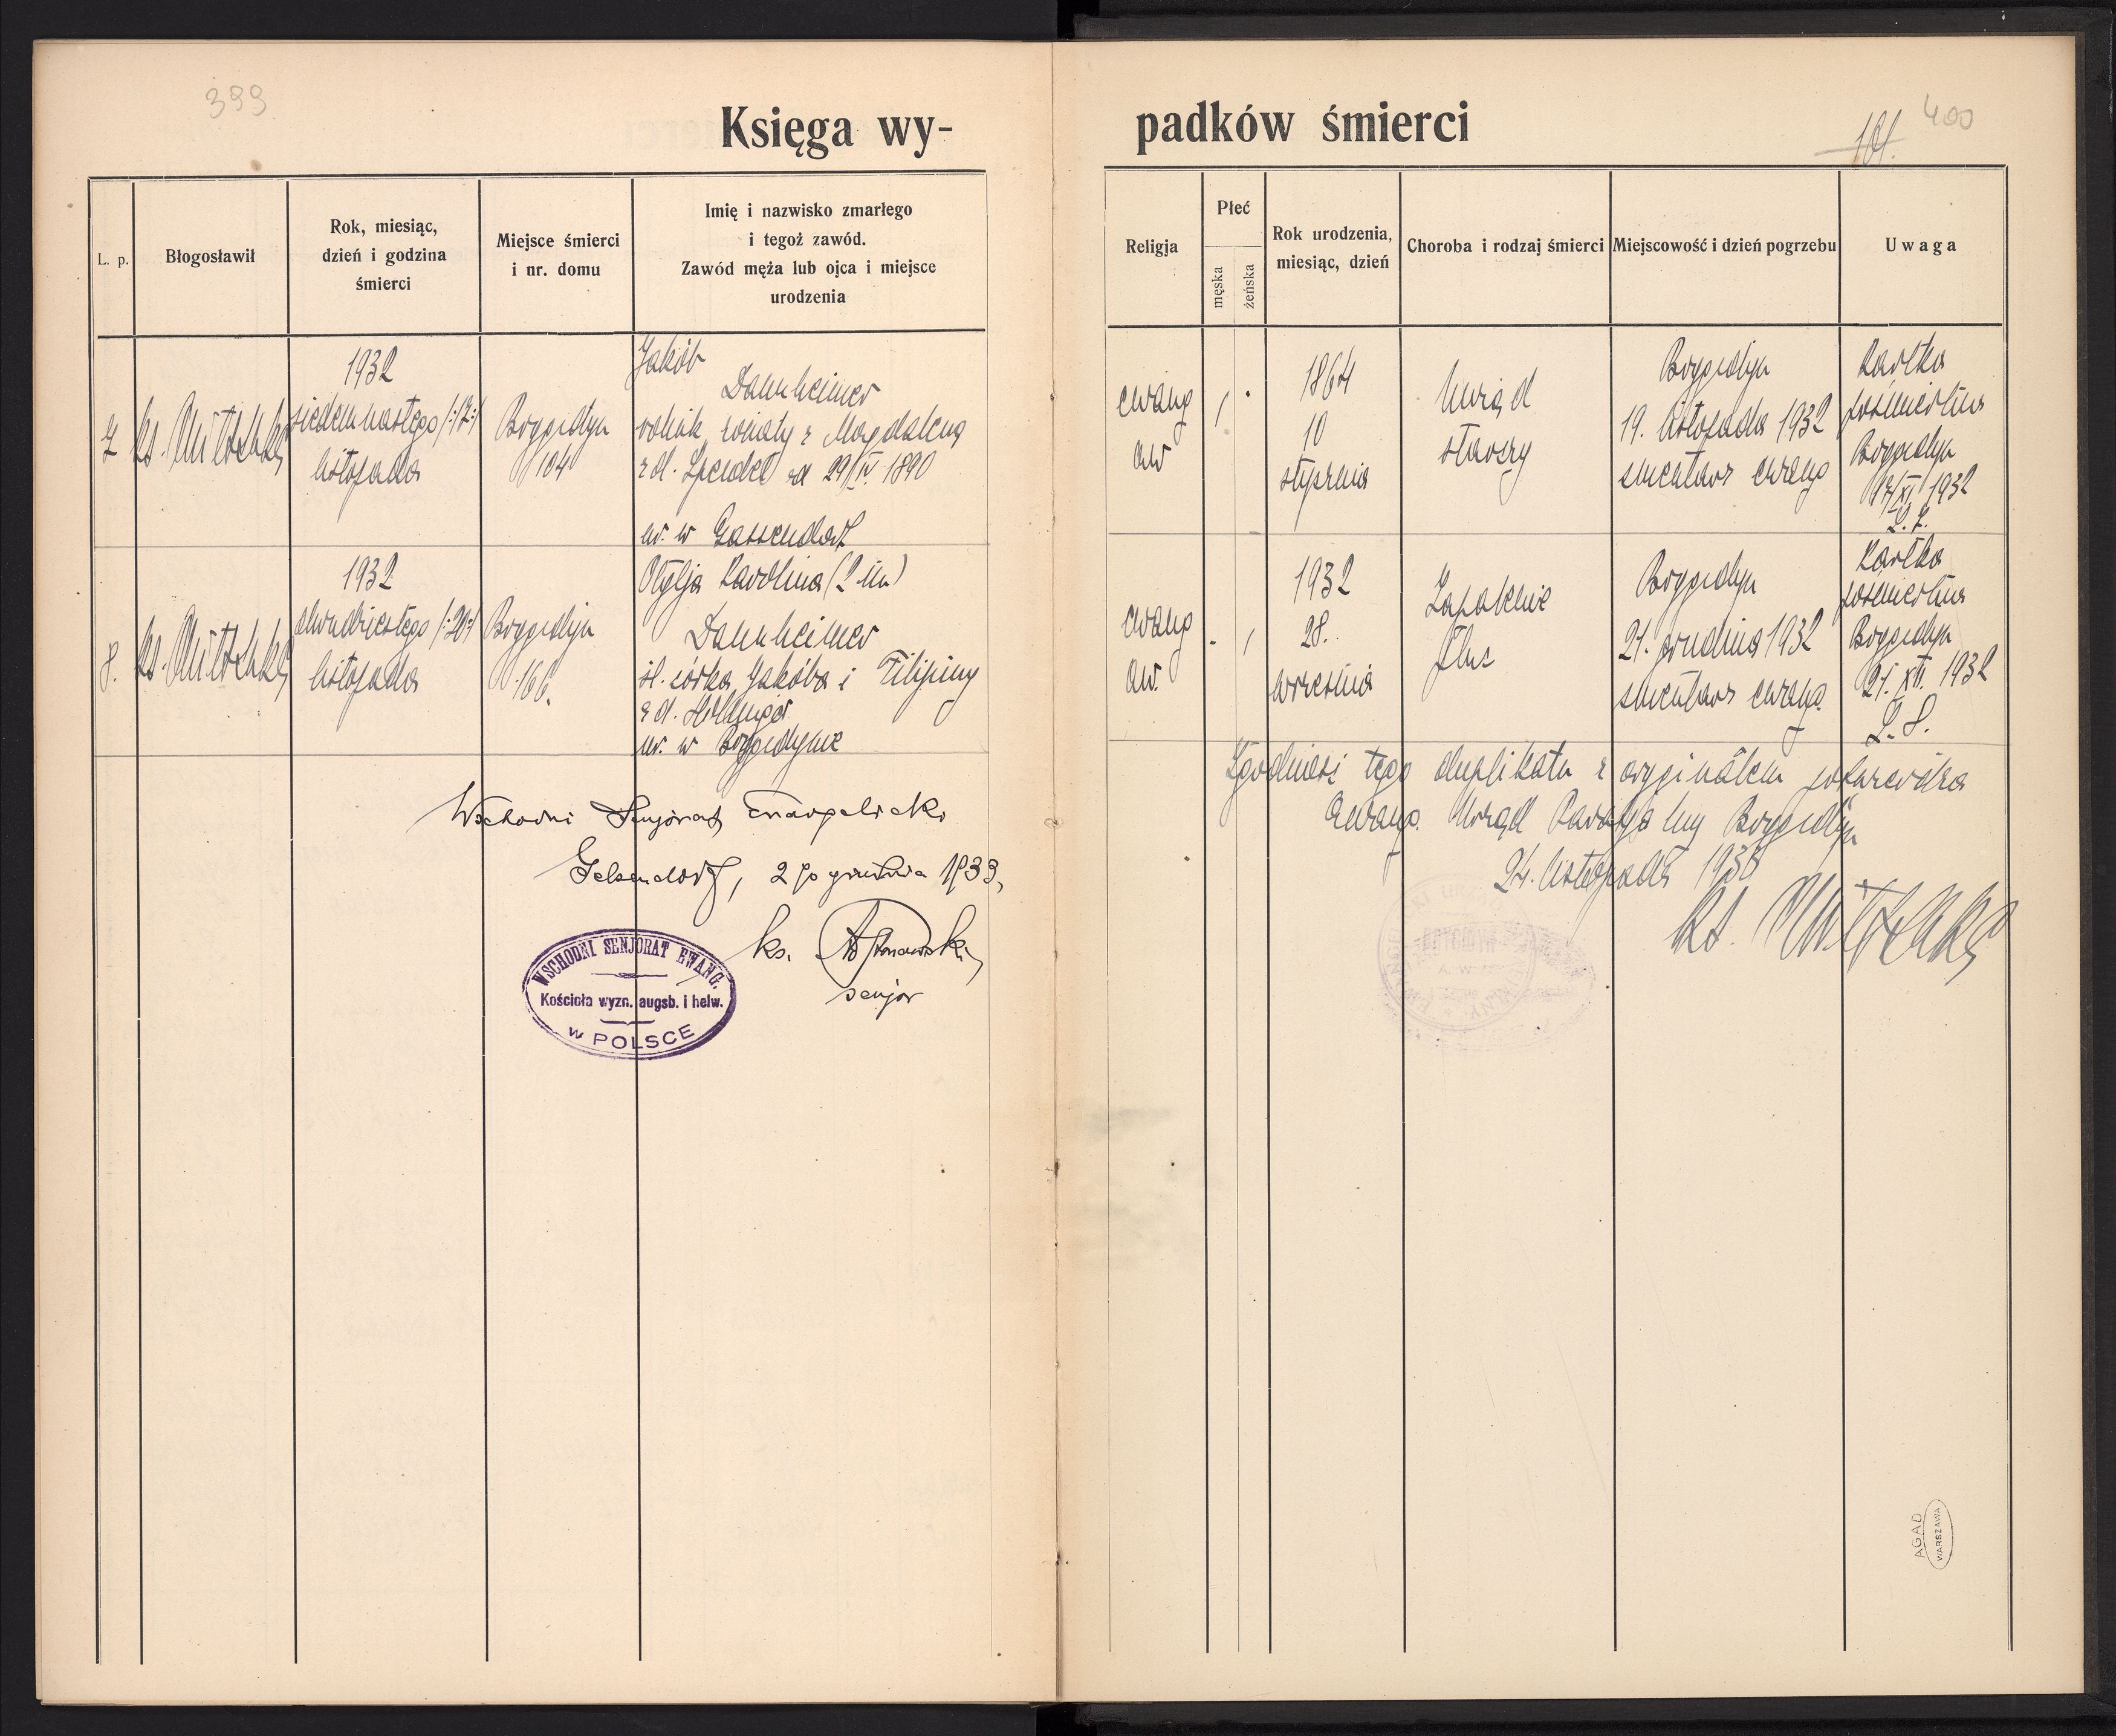 399
Księga wy-
padków śmierci
101.
400
L. p.
Błogosławił
Rok, miesiąc,
dzień i godzina
śmierci
Miejsce śmierci
i nr. domu
Imię i nazwisko zmarłego
i tegoż zawód.
Zawód męża lub ojca i miejsce
urodzenia
Religja
Płeć
męska
żeńska
Rok urodzenia,
miesiąc, dzień
Choroba i rodzaj śmierci
Miejscowość i dzień pogrzebu
Uwaga
7
ks.
1932
siedemnastego /:17:/
listopada
Brygidyn
104
Jakób
Dannheimer
rolnik żonaty z Magdaleną
zd. Speidel od 29/IV. 1890
ur. w Gassendorf
ewang
aw
1864
10
stycznia
Uwiąd
starszy
Brygidyn
19. listopada 1932
smentarz ewang
Kartka
pośmiertna
Brygidyn
17/XI. 1932
L. 7.
8.
ks.
1932
dwudziestego /:20:/
listopada
Brygidyn
166.
Otylja Karolina (2 im)
Dannheimer
śl. córka Jakóba i Filipiny
zd.
ur. w Brygidynie
ewang
aw.
1932
28.
września
Zapalenie
płuc
Brygidyn
21. grudnia 1932
smentarz ewang.
Kartka
pośmiertna
Brygidyn
21. XII. 1932
L. 8.
Zgodność tego duplikatu z oryginałem potwierdza
Ewang. Urząd Parafjalny Brygidyn
24. listopada 1933
ks.
Wschodni Senjorat Ewangelicki
Gelsendorf, 2go grudnia 1933,
ks.
senjor
WSCHODNI SENJORAT EWANG.
Kościoła wyzn. augsb. i helw.
w POLSCE
AGAD
WARSZAWA